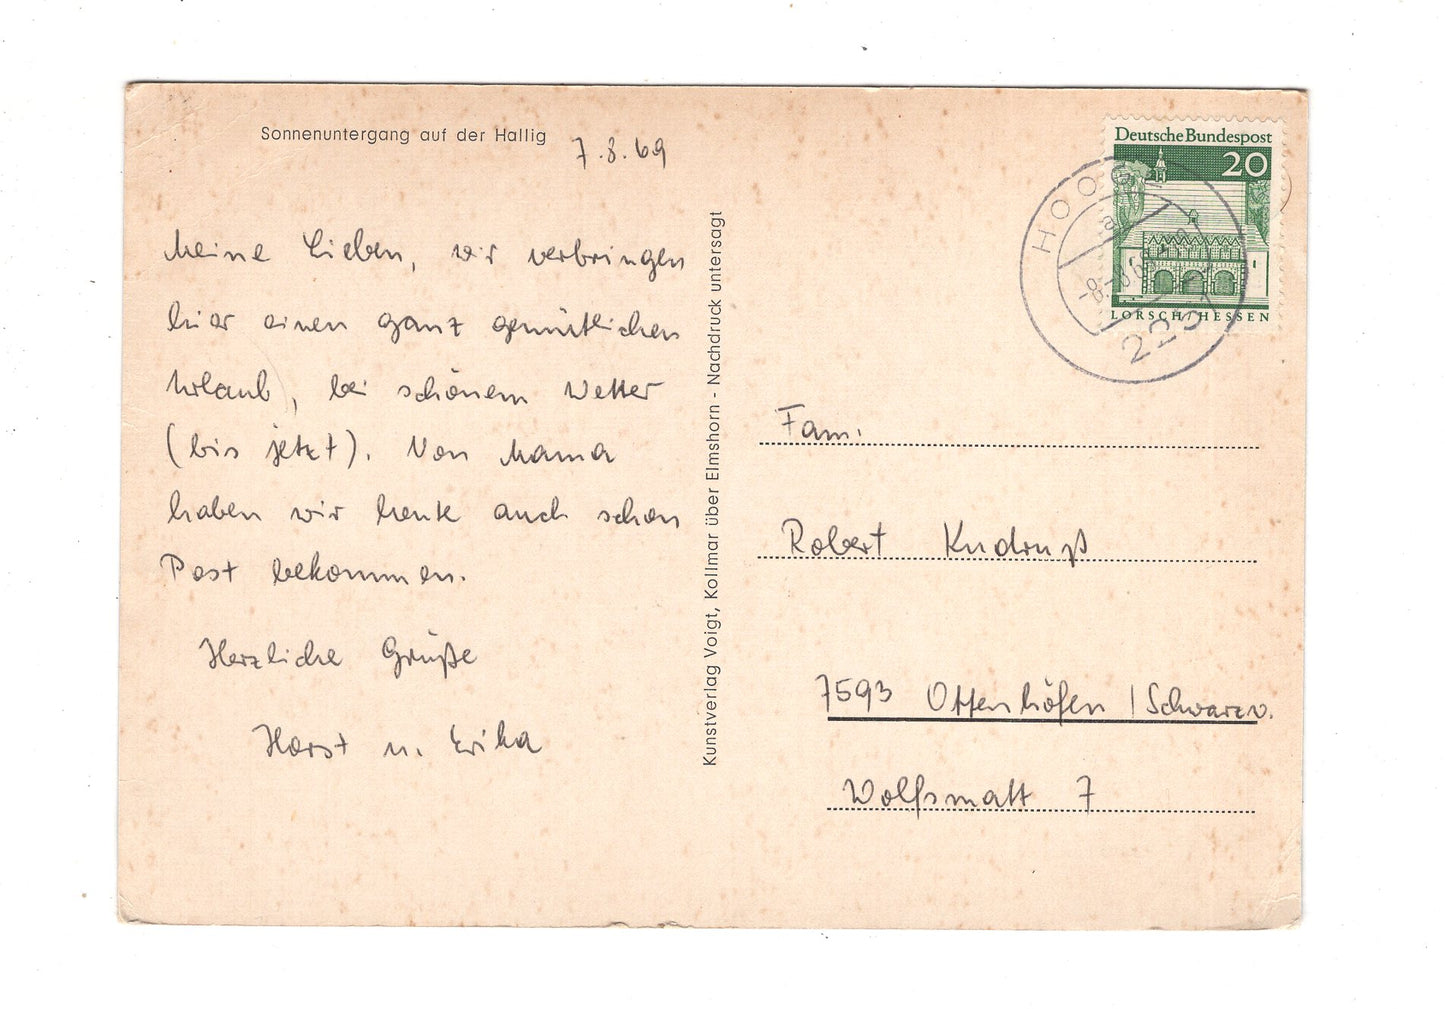 Sonnenuntergang auf der Hallig
7.8.69
Meine Lieben, wir verbringen
hier einen ganz gemütlichen
Urlaub, bei schönem Wetter
(bis jetzt). Von Mama
haben wir heute auch schon
Post bekommen.
Herzliche Grüße
Horst u. Erika
Kunstverlag Voigt, Kollmar über Elmshorn - Nachdruck untersagt
Deutsche Bundespost
20
LORSCH/HESSEN
HOOGE
a
Fam.
Robert Kudruß
7593 Ottenhöfen / Schwarzw.
Wolfsmatt 7